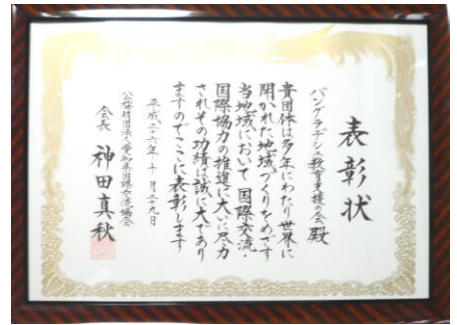 表彰状
バングラデシュ教育支援の会 殿
貴団体は多年にわたり世界に
開かれた地域づくりをめざす
当地域において国際交流・
国際協力の推進に大いに尽力
されその功績は誠に大であり
ますのでここに表彰します
平成二十六年十月二十九日
公益財団法人愛知県国際交流協会
会長 神田真秋